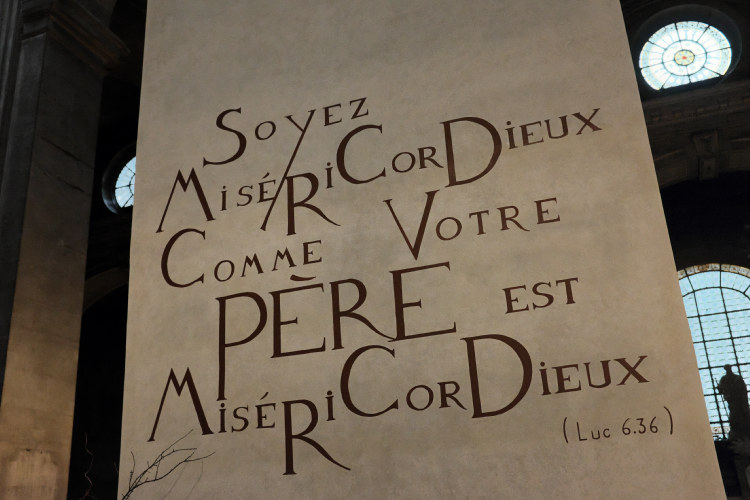 Soyez
MiséRiCorDieux
Comme Votre
PÈRE EST
MiséRiCorDieux
(Luc 6.36)